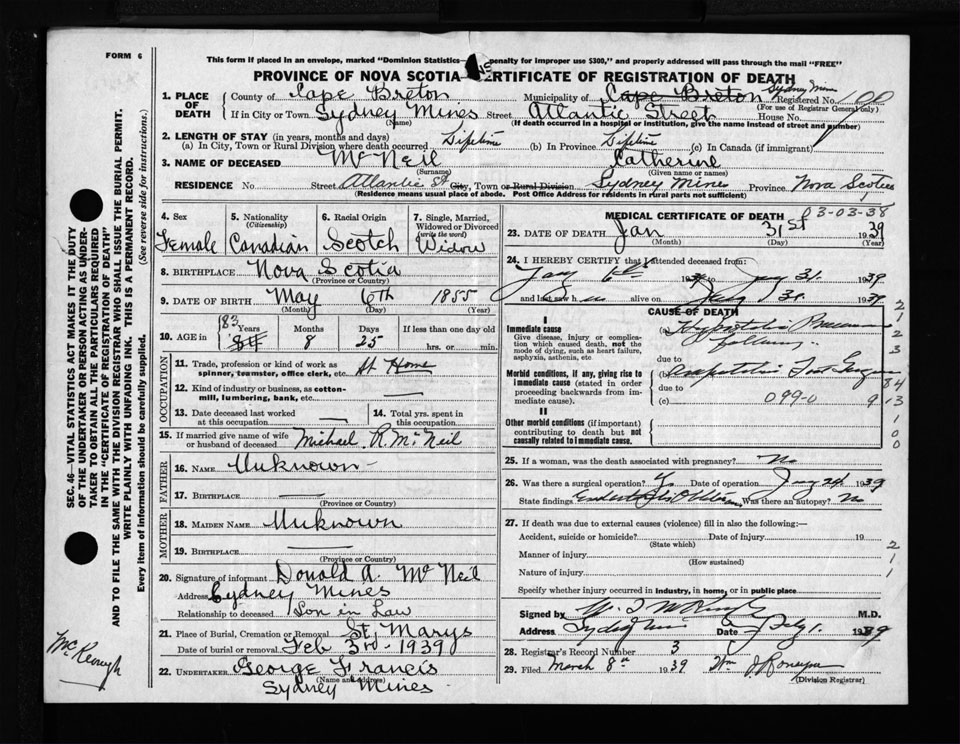 FORM 6
This form if placed in an envelope, marked "Dominion Statistics penalty for improper use $300," and properly addressed will pass through the mail "FREE"
PROVINCE OF NOVA SCOTIA CERTIFICATE OF REGISTRATION OF DEATH
1. PLACE OF DEATH County of Cape Breton Municipality of Cape Breton Sydney Mines Registered No.
(For use of Registrar General only)
If in City or Town Sydney Mines Street Atlantic Street House No.
(Name) (If death occurred in a hospital or institution, give the name instead of street and number)
2. LENGTH OF STAY (in years, months and days)
(a) In City, Town or Rural Division where death occurred Lifetime (b) In Province Lifetime (c) In Canada (if immigrant)
3. NAME OF DECEASED McNeil Catherine
(Surname) (Given name or names)
RESIDENCE No. Street Atlantic St City, Town or Rural Division Sydney Mines Province Nova Scotia
(Residence means usual place of abode. Post Office Address for residents in rural parts not sufficient)
4. Sex 5. Nationality (Citizenship) 6. Racial Origin 7. Single, Married, Widowed or Divorced (write the word)
Female Canadian Scotch Widow
8. BIRTHPLACE Nova Scotia
(Province or Country)
9. DATE OF BIRTH May 6th 1855
(Month) (Day) (Year)
10. AGE in 83 84 Years 8 Months 25 Days If less than one day
hrs. or min.
OCCUPATION
11. Trade, profession or kind of work as spinner, teamster, office clerk, etc. At Home
12. Kind of industry or business, as cotton-mill, lumbering, bank, etc.
13. Date deceased last worked at this occupation
14. Total yrs. spent in this occupation
15. If married give name of wife or husband of deceased Michael R. McNeil
FATHER
16. NAME Unknown
17. BIRTHPLACE
(Province or Country)
MOTHER
18. MAIDEN NAME Unknown
19. BIRTHPLACE
(Province or Country)
20. Signature of informant Donald A. McNeil
Address Sydney Mines
Relationship to deceased Son in Law
21. Place of Burial, Cremation or Removal St. Marys
Date of burial or removal Feb 3rd - 1939
22. UNDERTAKER George Francis
(Name and address)
Sydney Mines
MEDICAL CERTIFICATE OF DEATH 03-03-38
23. DATE OF DEATH Jan 31st 1939
(Month) (Day) (Year)
24. I HEREBY CERTIFY that I attended deceased from:
Jany 6th 1939 to Jany 31. 1939
and last saw h alive on Jany 31. 1939
CAUSE OF DEATH
I
Immediate cause
Give disease, injury or complication which caused death, not the mode of dying, such as heart failure, asphyxia, asthenia, etc
(a) Hypostatic
following
due to
Morbid conditions, if any, giving rise to immediate cause (stated in order proceeding backwards from immediate cause).
(b)
due to
(c) 099-0 9
II
Other morbid conditions (if important) contributing to death but not causally related to immediate cause.
2
1
2
3
84
13
1
0
0
25. If a woman, was the death associated with pregnancy? No
26. Was there a surgical operation? Date of operation Jany 24 1939
State findings Was there an autopsy? No
27. If death was due to external causes (violence) fill in also the following:—
Accident, suicide or homicide? Date of Injury 19
(State which)
Manner of injury
(How sustained)
Nature of injury
Specify whether injury occurred in industry, in home, or in public place
2
1
1
Signed by M.D.
Address Sydney Mines Date Feby 1. 1939
28. Registrar's Record Number 3
29. Filed March 8th 1939 Wm
(Division Registrar)
SEC. 46—VITAL STATISTICS ACT MAKES IT THE DUTY OF THE UNDERTAKER OR PERSON ACTING AS UNDERTAKER TO OBTAIN ALL THE PARTICULARS REQUIRED IN THE "CERTIFICATE OF REGISTRATION OF DEATH" AND TO FILE THE SAME WITH THE DIVISION REGISTRAR WHO SHALL ISSUE THE BURIAL PERMIT.
WRITE PLAINLY WITH UNFADING INK. THIS IS A PERMANENT RECORD.
Every item of information should be carefully supplied. (See reverse side for instructions.)
McKeough